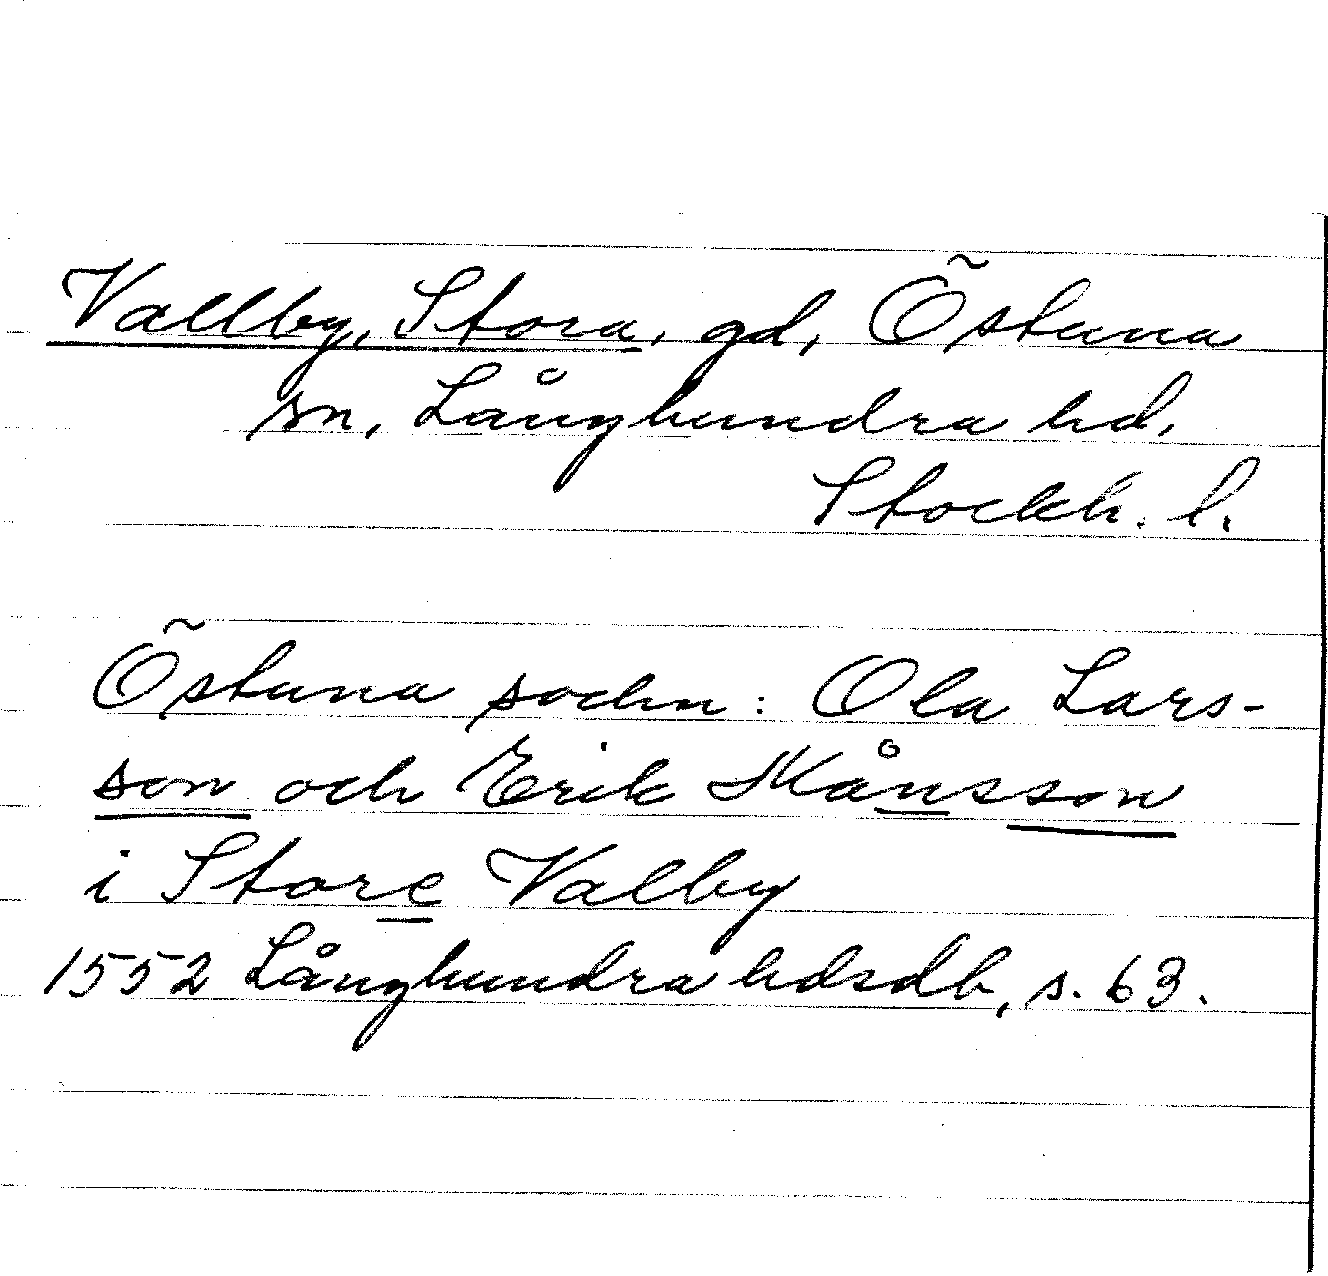 Vallby, Stora, gd, Östuna
sn, Långhundra hd,
Stockh. l.
Östuna sochn: Ola Lars-
son och Erik Månsson
i Store Valby
1552 Långhundra hdsdb, s. 63.